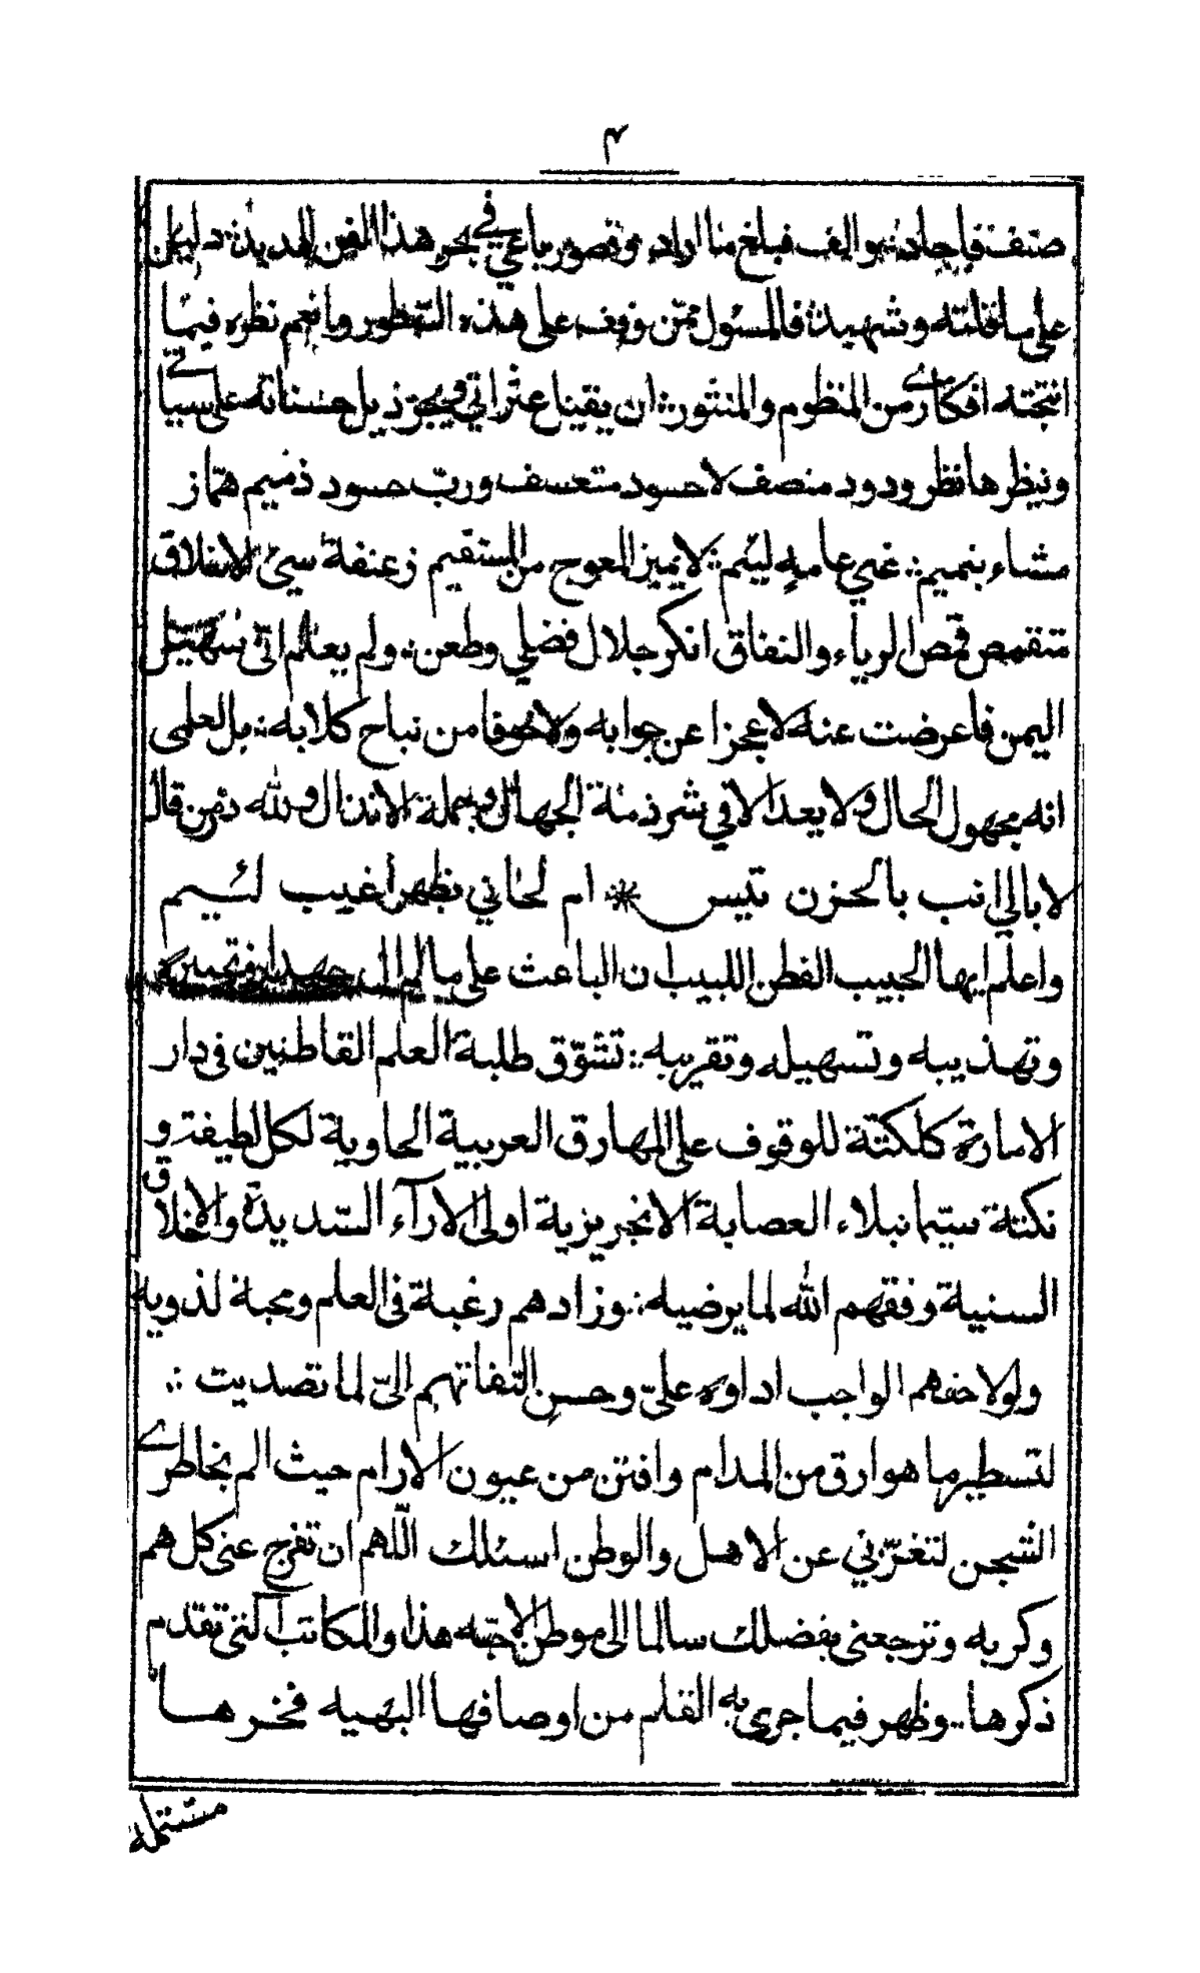 ٤
صنف فاجاد والف فبلغ منا المراد وقصور باعي في بحر هذا الفن المديد دليل
على ما قلته وشهيد فالمسئول ممن وقف على هذه السطور وانعم نظره فيما
انتجته افكاري من المنظوم والمنثور ان يقيناع عثراتي ويجر ذيل حسناته على سيأتي
وينظرها نظر ودود منصف لا حسود متعسف ورب حسود ذميم هماز
مشاء بنميم غبي عامه لئيم لا يميز المعوج من المستقيم زعنفة سيئ الاخلاق
متقمص قمص الرياء والنفاق انكر جلال فضلي وطعن ولم يعلم اني سهيل
اليمن فاعرضت عنه لا عجزا عن جوابه ولا خوفا من نباح كلابه بل لعلمي
انه مجهول الحال ولا يعد الا في شرذمة الجهال وجملة الانذال ولله در من قال
لا ابالي انب بالحزن تيس * ام لحاني بظهر غيب لئيم
واعلم ايها الحبيب الفطن اللبيب ان الباعث على ما لم ال جهدا في تحسينه
وتهذيبه وتسهيله وتقريبه تشوق طلبة العلم القاطنين في دار
الامارة كلكتة للوقوف على المهارق العربية الحاوية لكل لطيفة و
نكتة سيما نبلاء العصابة الانجريزية اولى الارآء السديدة والاخلاق
السنية وفقهم الله لما يرضيه وزادهم رغبة في العلم ومحبة لذويه
ولولا حقهم الواجب اداوه علي وحسن التفاتهم الي لما تصديت
لتسطير ما هو ارق من المدام وافتن من عيون الارام حيث الم بخاطري
الشجن لتغربي عن الاهل والوطن اسئلك اللهم ان تفرج عني كل هم
وكربه وترجعني بفضلك سالما الى موطن الاحبه هذا والمكاتب التي تقدم
ذكرها وظهر فيما جرى به القلم من اوصافها البهيه فخرها
مشتملة